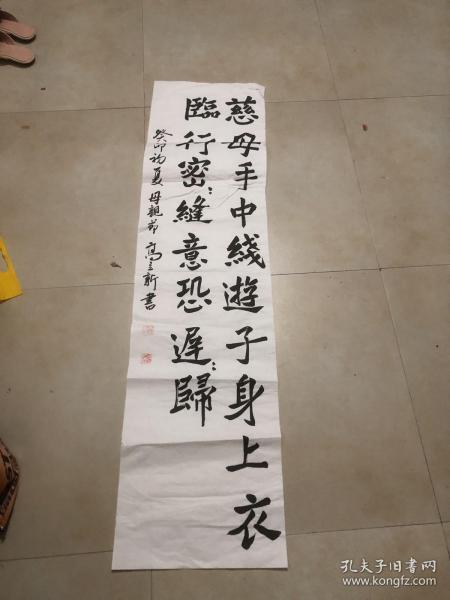 慈母手中綫遊子身上衣
臨行密:縫意恐遲:歸
癸卯初夏母親節高立新書
孔夫子旧书网
www.kongfz.com